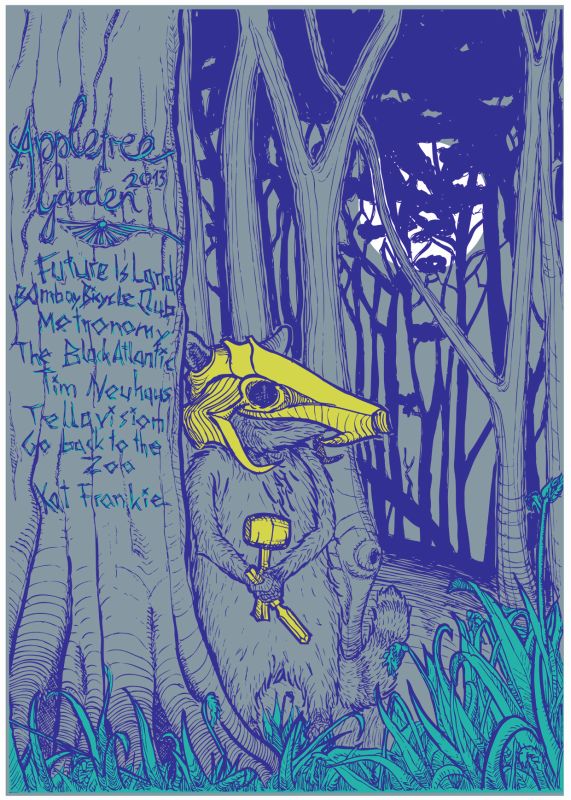 Appletree
Garden 2013
Future Is Lands
Bombay Bicycle Club
Metronomy
The Black Atlantic
Tim Neuhaus
Tellavision
Go back to the
Zoo
Kat Frankie